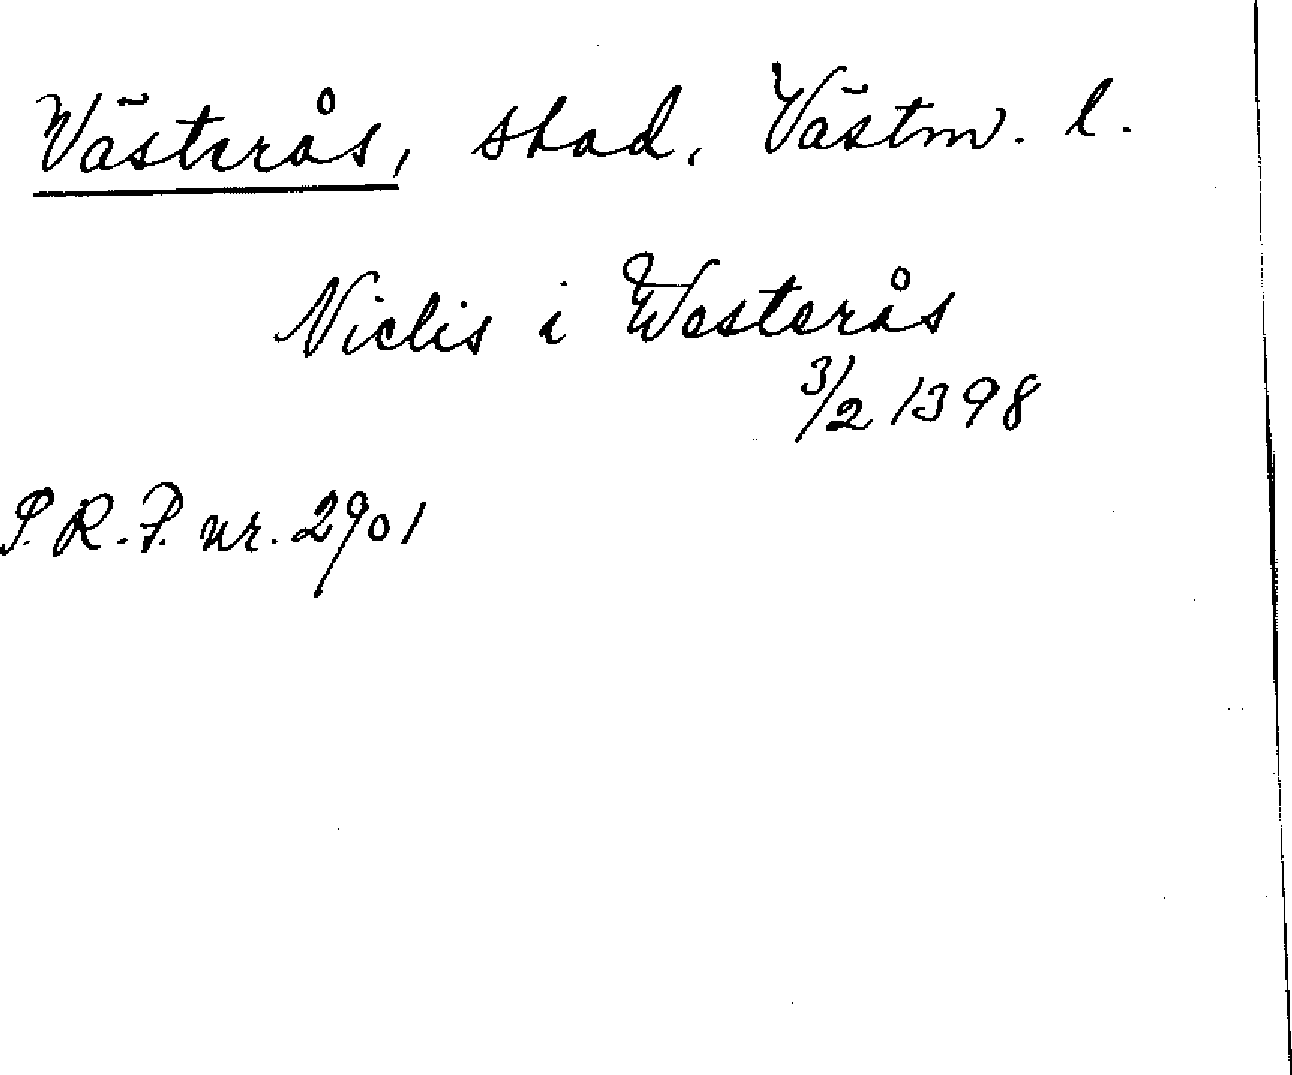 Västerås, stad, Västm. l.
Niclis i Westerås
3/2 1398
S.R.P. nr. 2901